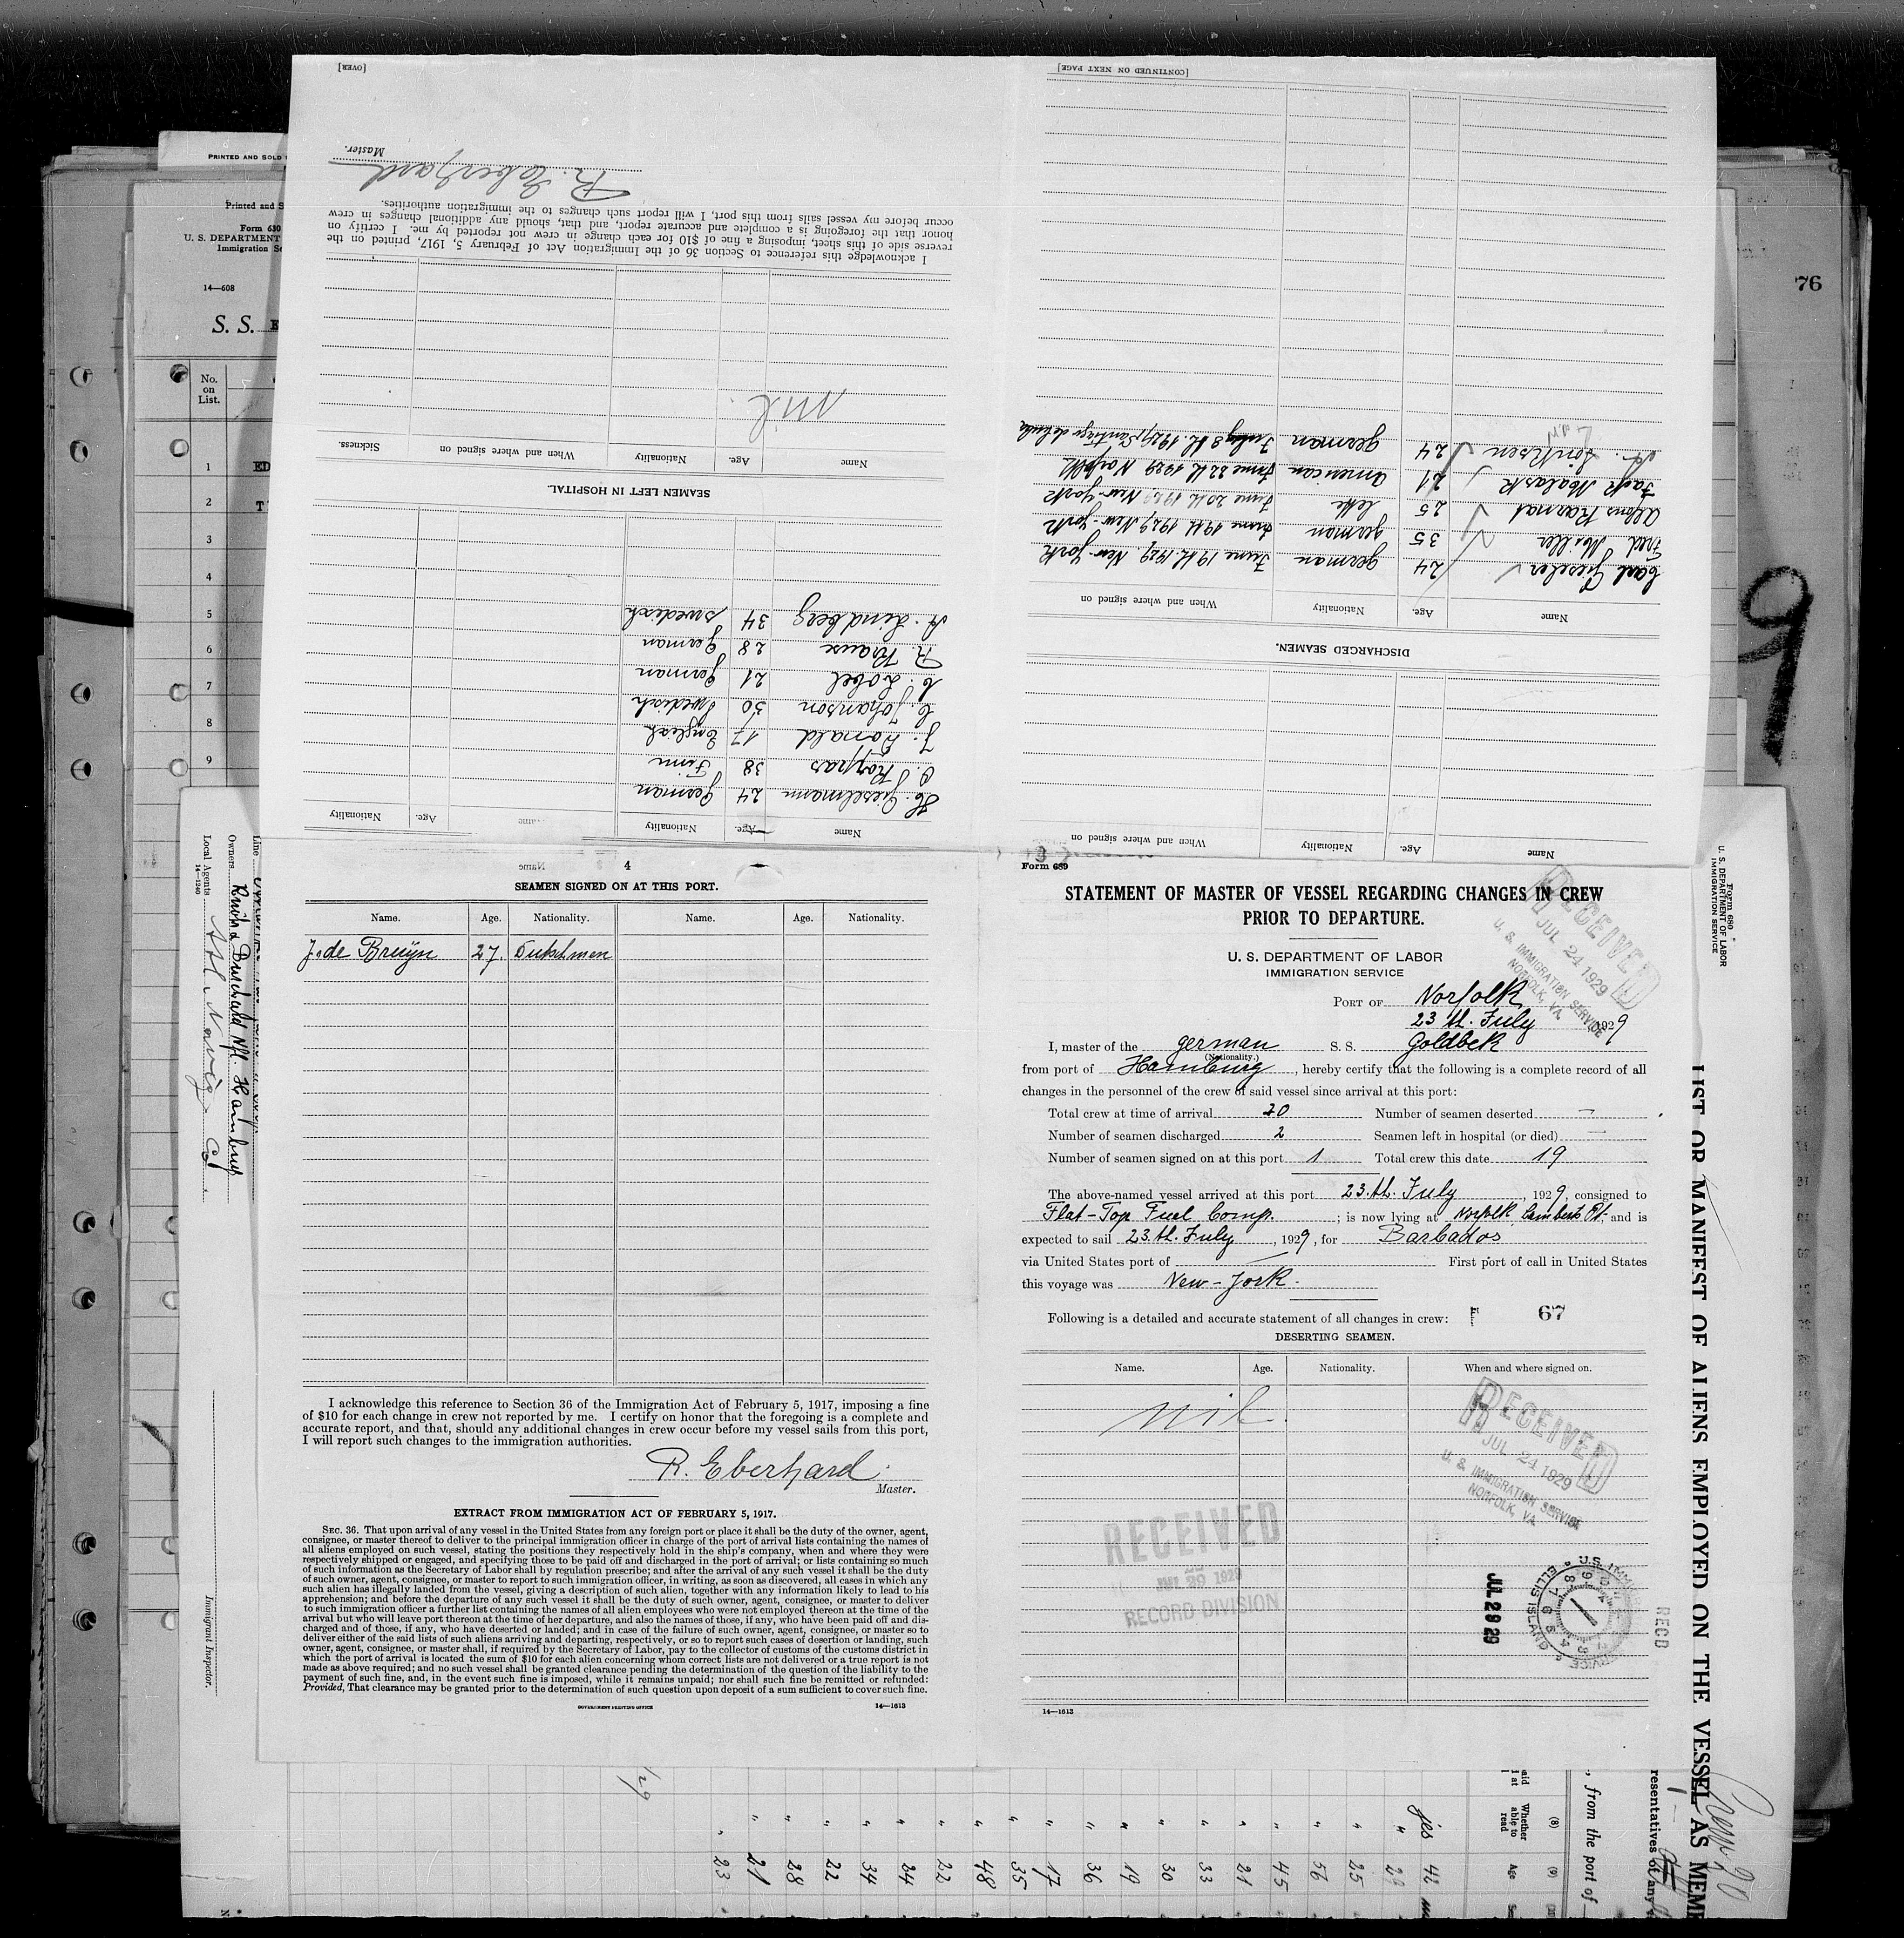 PRINTED AND SOLD
Printed and S
Form 630
U. S. DEPARTMENT
Immigration Se
14—608
S. S. E
No.
on
List.
1 ED
2 T
3
4
5
6
7
8
9
76
9
[OVER]
Master.
R. Eberhard
I acknowledge this reference to Section 36 of the Immigration Act of February 5, 1917, printed on the
reverse side of this sheet, imposing a fine of $10 for each change in crew not reported by me. I certify on
honor that the foregoing is a complete and accurate report, and that, should any additional changes in crew
occur before my vessel sails from this port, I will report such changes to the immigration authorities.
nil.
Name Age. Nationality When and where signed on Sickness.
SEAMEN LEFT IN HOSPITAL.
A. Lindberg 34 swedisch
R. Krause 28 German
C. Lobel 21 German
C. Johanson 30 Swedisch
J. Ronald 17 English
O. Koppas 38 Finn
H. Gieselmann 24 German
Name Age. Nationality Name Age. Nationality
[CONTINUED ON NEXT PAGE]
A. Sönksen 24 german July 8th. 1929, Santiago de Cuba
Jack Malask 21 American June 22th 1929 Norfolk
Alfons Karnat 25 lette June 20th 1929 New-York
Fred Möller 35 german June 19th 1929 New-York
Carl Gieseler 24 german June 19th. 1929. New-York
Name Age. Nationality When and where signed on
DISCHARGED SEAMEN.
Name Age. Nationality When and where signed on
4
SEAMEN SIGNED ON AT THIS PORT.
Name. Age. Nationality. Name. Age. Nationality.
J. de Bruijn 27. Dutchmen
I acknowledge this reference to Section 36 of the Immigration Act of February 5, 1917, imposing a fine
of $10 for each change in crew not reported by me. I certify on honor that the foregoing is a complete and
accurate report, and that, should any additional changes in crew occur before my vessel sails from this port,
I will report such changes to the immigration authorities.
R. Eberhard
Master.
EXTRACT FROM IMMIGRATION ACT OF FEBRUARY 5, 1917.
SEC. 36. That upon arrival of any vessel in the United States from any foreign port or place it shall be the duty of the owner, agent,
consignee, or master thereof to deliver to the principal immigration officer in charge of the port of arrival lists containing the names of
all aliens employed on such vessel, stating the positions they respectively hold in the ship's company, when and where they were
respectively shipped or engaged, and specifying those to be paid off and discharged in the port of arrival; or lists containing so much
of such information as the Secretary of Labor shall by regulation prescribe; and after the arrival of any such vessel it shall be the duty
of such owner, agent, consignee, or master to report to such immigration officer, in writing, as soon as discovered, all cases in which any
such alien has illegally landed from the vessel, giving a description of such alien, together with any information likely to lead to his
apprehension; and before the departure of any such vessel it shall be the duty of such owner, agent, consignee, or master to deliver
to such immigration officer a further list containing the names of all alien employees who were not employed thereon at the time of the
arrival but who will leave port thereon at the time of her departure, and also the names of those, if any, who have been paid off and dis-
charged and of those, if any, who have deserted or landed; and in case of the failure of such owner, agent, consignee, or master so to
deliver either of the said lists of such aliens arriving and departing, respectively, or so to report such cases of desertion or landing, such
owner, agent, consignee, or master shall, if required by the Secretary of Labor, pay to the collector of customs of the customs district in
which the port of arrival is located the sum of $10 for each alien concerning whom correct lists are not delivered or a true report is not
made as above required; and no such vessel shall be granted clearance pending the determination of the question of the liability to the
payment of such fine, and, in the event such fine is imposed, while it remains unpaid; nor shall such fine be remitted or refunded:
Provided, That clearance may be granted prior to the determination of such question upon deposit of a sum sufficient to cover such fine.
GOVERNMENT PRINTING OFFICE 14—1613
Form 689
STATEMENT OF MASTER OF VESSEL REGARDING CHANGES IN CREW
PRIOR TO DEPARTURE.
U. S. DEPARTMENT OF LABOR
IMMIGRATION SERVICE
RECEIVED
JUL 24 1929
U. S. IMMIGRATION SERVICE
NORFOLK, VA.
PORT OF Norfolk
23 th. July 1929
I, master of the german S. S. Goldbek
(Nationality.)
from port of Hamburg, hereby certify that the following is a complete record of all
changes in the personnel of the crew of said vessel since arrival at this port:
Total crew at time of arrival 20 Number of seamen deserted —
Number of seamen discharged 2 Seamen left in hospital (or died) —
Number of seamen signed on at this port 1 Total crew this date 19
The above-named vessel arrived at this port 23.th. July, 1929, consigned to
Flat-Top Fuel Comp.; is now lying at Norfolk Lamberts Pt. and is
expected to sail 23.th. July, 1929, for Barbados
via United States port of — First port of call in United States
this voyage was New-York.
Following is a detailed and accurate statement of all changes in crew: 67
DESERTING SEAMEN.
Name. Age. Nationality. When and where signed on.
nil.
RECEIVED
JUL 24 1929
U. S. IMMIGRATION SERVICE
NORFOLK, VA.
RECEIVED
29 1929
RECORD DIVISION
JUL 29 29
ELLIS ISLAND
RECD
14—1613
Line
Owners
Local Agents
14—1240
Hamburg
Immigrant Inspector.
Form 680
U. S. DEPARTMENT OF LABOR
IMMIGRATION SERVICE
LIST OR MANIFEST OF ALIENS EMPLOYED ON THE VESSEL AS MEM
resentatives of any
, from the port of
Crew 20
(8) (9)
Whether able to read
Age
yes
42
25
56
45
21
33
30
19
36
17
35
48
22
24
34
22
28
21
23